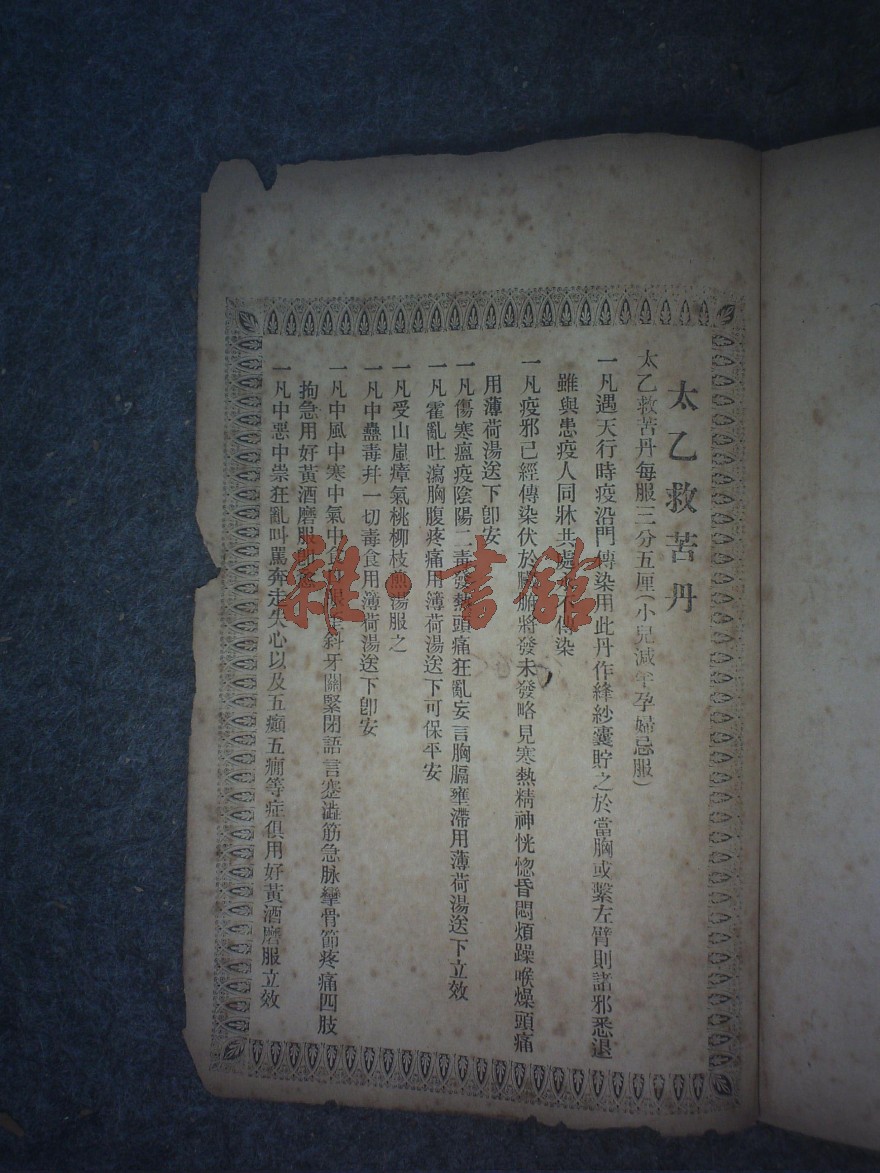 太乙救苦丹
太乙救苦丹每服三分五厘(小兒減半孕婦忌服)
一凡遇天行時疫沿門傳染用此丹作絳紗囊貯之於當胸或繫左臂則諸邪悉退
雖與患疫人同牀共處 傳染
一凡疫邪已經傳染伏於臟腑將發未發略見寒熱精神恍惚昏悶煩躁喉燥頭痛
用薄荷湯送下卽安
一凡傷寒瘟疫陰陽二毒發熱頭痛狂亂妄言胸膈壅滯用薄荷湯送下立效
一凡霍亂吐瀉胸腹疼痛用薄荷湯送下可保平安
一凡受山嵐瘴氣桃柳枝煎湯服之
一凡中蠱毒幷一切毒食用薄荷湯送下卽安
一凡中風中寒中氣中食 斜牙關緊閉語言蹇澁筋急脉攣骨節疼痛四肢
拘急用好黃酒磨服
一凡中惡中祟狂亂叫罵奔走失心以及五癲五癇等症俱用好黃酒磨服立效
雜·書館